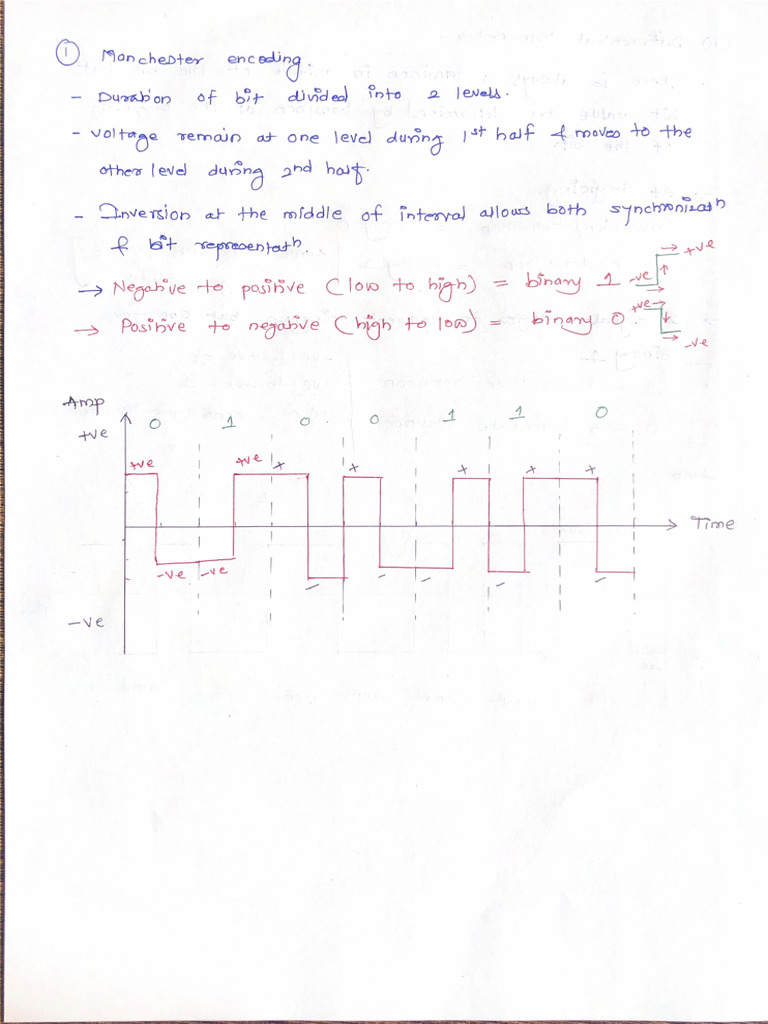 ① Manchester encoding.
- Duration of bit divided into 2 levels.
- Voltage remain at one level during 1st half & moves to the
other level during 2nd half.
- Inversion at the middle of interval allows both synchronizatn
& bit representatn.
→ Negative to positive (low to high) = binary 1 -ve +ve
→ Positive to negative (high to low) = binary 0 +ve -ve
Amp
0 1 0 0 1 1 0
+ve
+ve +ve + + + + +
Time
-ve -ve - - - - -
-ve